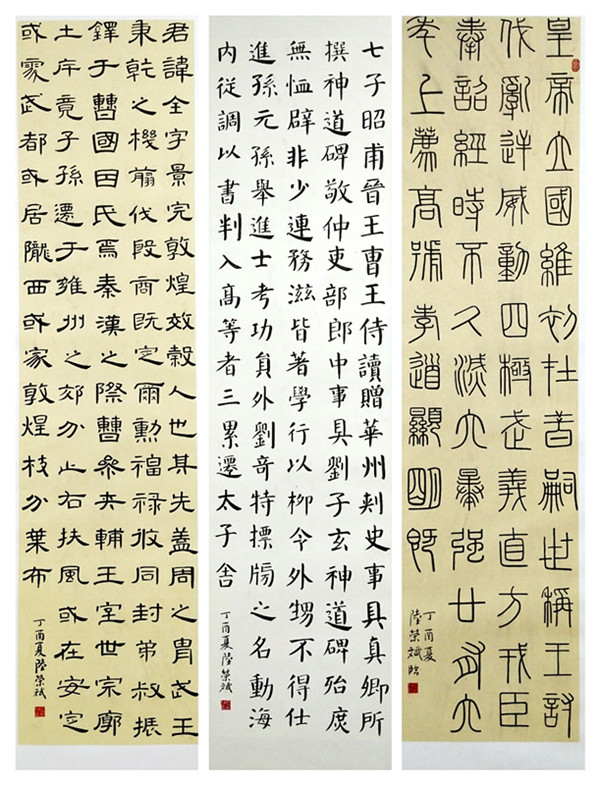 皇帝立國維初在昔嗣世稱王討
伐亂逆威動四極武義直方戎臣
奉詔經時不久滅六暴強廿有六
年上薦高號孝道顯明既
丁酉夏
陸榮斌臨
七子昭甫晉王曹王侍讀贈華州刾史事具真卿所
撰神道碑敬仲吏部郎中事具劉子玄神道碑殆庶
無恤辟非少連務滋皆著學行以柳令外甥不得仕
進孫元孫舉進士考功員外劉奇特摽牓之名動海
內從調以書判入高等者三累遷太子舍
丁酉夏陸榮斌
君諱全字景完敦煌效穀人也其先蓋周之胄武王
秉乾之機翦伐殷商既定爾勳福祿攸同封弟叔振
鐸于曹國因氏焉秦漢之際曹參夾輔王室世宗廓
土斥竟子孫遷于雍州之郊分止右扶風或在安定
或處武都或居隴西或家敦煌枝分葉布
丁酉夏陸榮斌